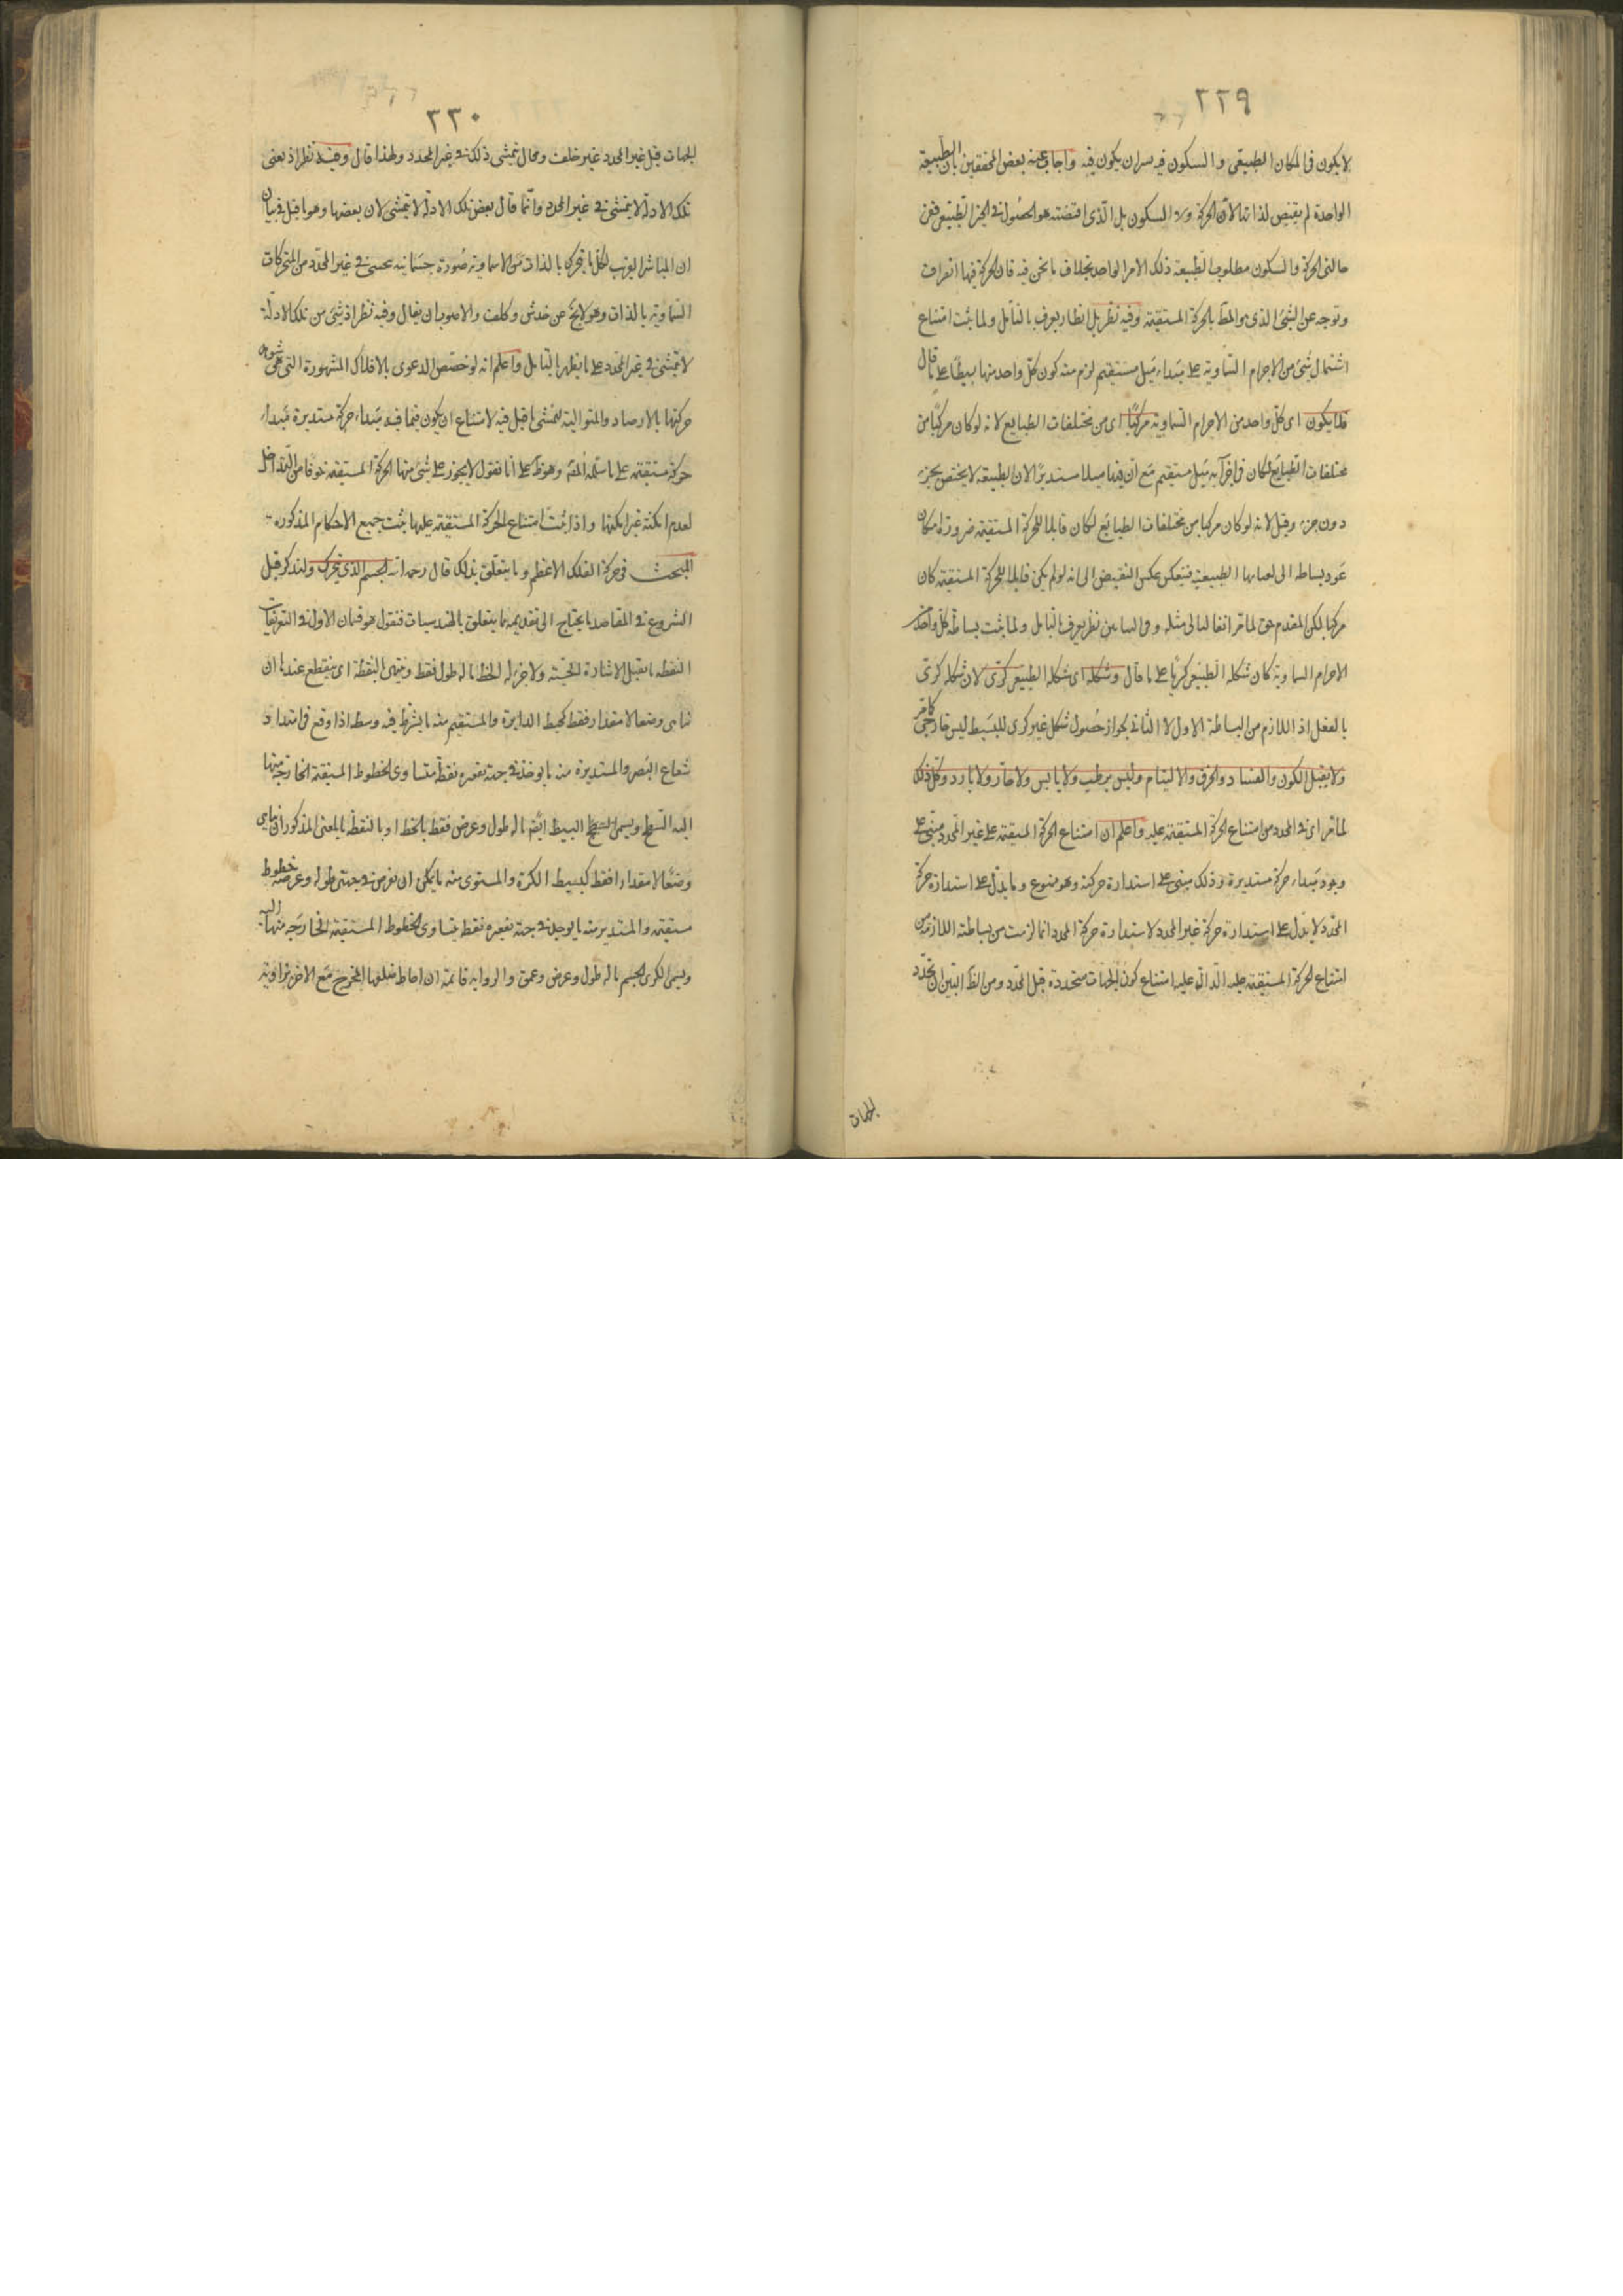 ٢٢٩
لا يكون في المكان الطبيعي والسكون فيه بدان يكون فيه واجاب عنه بعض المحققين بان الطبيعة
الواحدة لم يقتض لذاتها الان الحركة ولا السكون بل الذي اقتضته هو الحصول في الحيز الطبيعي ففي
حالتي الحركة والسكون مطلوب الطبيعة ذلك الامر الواحد بخلاف ما نحن فيه فان الحركة فيها انصراف
وتوجه عن الشئ الذي هو المط بالحركة المستقيمة وفيه نظر بل انظار يعرف بالتأمل ولما ثبت امتناع
اشتمال شئ من الاجرام السماوية على مبداء ميل مستقيم لزم منه كون كل واحد منها بسيطا على ما قال
فلا يكون اى كل واحد من الاجرام السماوية مركبا اى من مختلفات الطبايع لانه لو كان مركبا من
مختلفات الطبايع لكان في اجزائه ميل مستقيم مع ان فيها ميلا مستديرا لان الطبيعة لا يختص بجزء
دون جزء وقيل لانه لو كان مركبا من مختلفات الطبايع لكان قابلا للحركة المستقيمة ضرورة امكان
عود بسائطه الى الطبيعية فينعكس عكس النقيض الى انه لو لم يكن قابلا للحركة المستقيمة كان
مركبا لكن المقدم حق لما مر انفا فالتالى مثله وفي نظر يعرف بالتأمل ولما ثبت بساطة كل واحد من
الاجرام السماوية كان شكله الطبيعي كريا على ما قال وشكله اى شكله الطبيعي كرى لان شكله كرى
بالفعل اذ اللازم من البساطة الاول لا الثاني لجواز حصول شكل غير كرى للبسيط ليس خارجي كما مر
ولا يقبل الكون والفساد والخرق والالتيام وليس برطب ولا يابس ولا حار ولا بارد وكل ذلك
لما مر اى في المحدد من امتناع الحركة المستقيمة عليه واعلم ان امتناع الحركة المستقيمة على غير المحدد مبني على
وجود مبداء حركة مستديرة وذلك مبنى على استدارة حركته وهو ممنوع وما يدل على استدارة حركة
المحدد لا يدل على استدارة حركة غير المحدد لاستدارة حركة المحدد انما لزمت من بساطته اللازمة من
امتناع الحركة المستقيمة عليه الدال عليه امتناع كون الجهات متحددة قبل المحدد ومن الظ البين ان تحدد
الجهات
٢٣٠
الجهات قبل غير المحدد غير خلف ومحال تمشى ذلك في غير المحدد ولهذا قال وفيه نظر اذ بعض
تلك الادلة لا يتمشى في غير المحدد وانما قال بعض تلك الادلة لا يتمشى لان بعضها وهو ما قيل في بيان
ان المباشر القريب لكل ما يتحرك بالذات من السماوية صورة جسمانية في غير المحدد من المتحركات
السماوية بالذات وهو لا يخ عن خدش وكلفة والاصوب ان يقال وفيه نظر اذ شئ من تلك الادلة
لا يتمشى في غير المحدد على ما يظهر بالتأمل واعلم انه لو خصص الدعوى بالافلاك المشهورة التي هي
حركتها بالارصاد والمتوالية لتمشى ما قيل فيه لامتناع ان يكون فيما فيه مبداء حركة مستديرة مبداء
حركة مستقيمة على ما سلمه المص وهو ظ على انا نقول لا يجوز على شئ منها الحركة المستقيمة خوفا من التداخل
لعدم امكنة غير امكنتها واذا ثبت امتناع الحركة المستقيمة عليها ثبت جميع الاحكام المذكورة
المبحث في حركة الفلك الاعظم وما يتعلق بذلك قال رحمه الله الجسم الذي يتحرك ولنذكر قبل
الشروع في المقاصد ما يحتاج الى تقديمه مما يتعلق بالهندسيات فنقول هو قسمان الاول في التعريفات
النقطة ما يقبل الاشارة الحسية ولا جزء له الخط ما له طول فقط وينتهي بالنقطة اى ينقطع عندها ان
تناهى وضعا لا مقدار فقط كمحيط الدايرة والمستقيم منه ما يستر طرفه وسطه اذا وقع في امتداد
شعاع البصر والمستديرة منه ما يوجد في جهة تقعره نقطة متساوى الخطوط المستقيمة الخارجة منها
اليه السطح ويسمى البسيط ايضا ما له طول وعرض فقط بالخط او بالنقطة بالمعنى المذكور ان تناهى
وضعا لا مقدارا فقط كبسيط الكرة والمستوى منه ما يمكن ان نفرض في جهتي طوله وعرضه خطوط
مستقيمة والمستدير منه ما يوجد في جهة تقعره نقطة يتساوى الخطوط المستقيمة الخارجة منها اليه
ويسمى الكرى الجسم ما له طول وعرض وعمق والزواية قائمة ان احاط ضلعها المخرج مع الاخر بزاوية